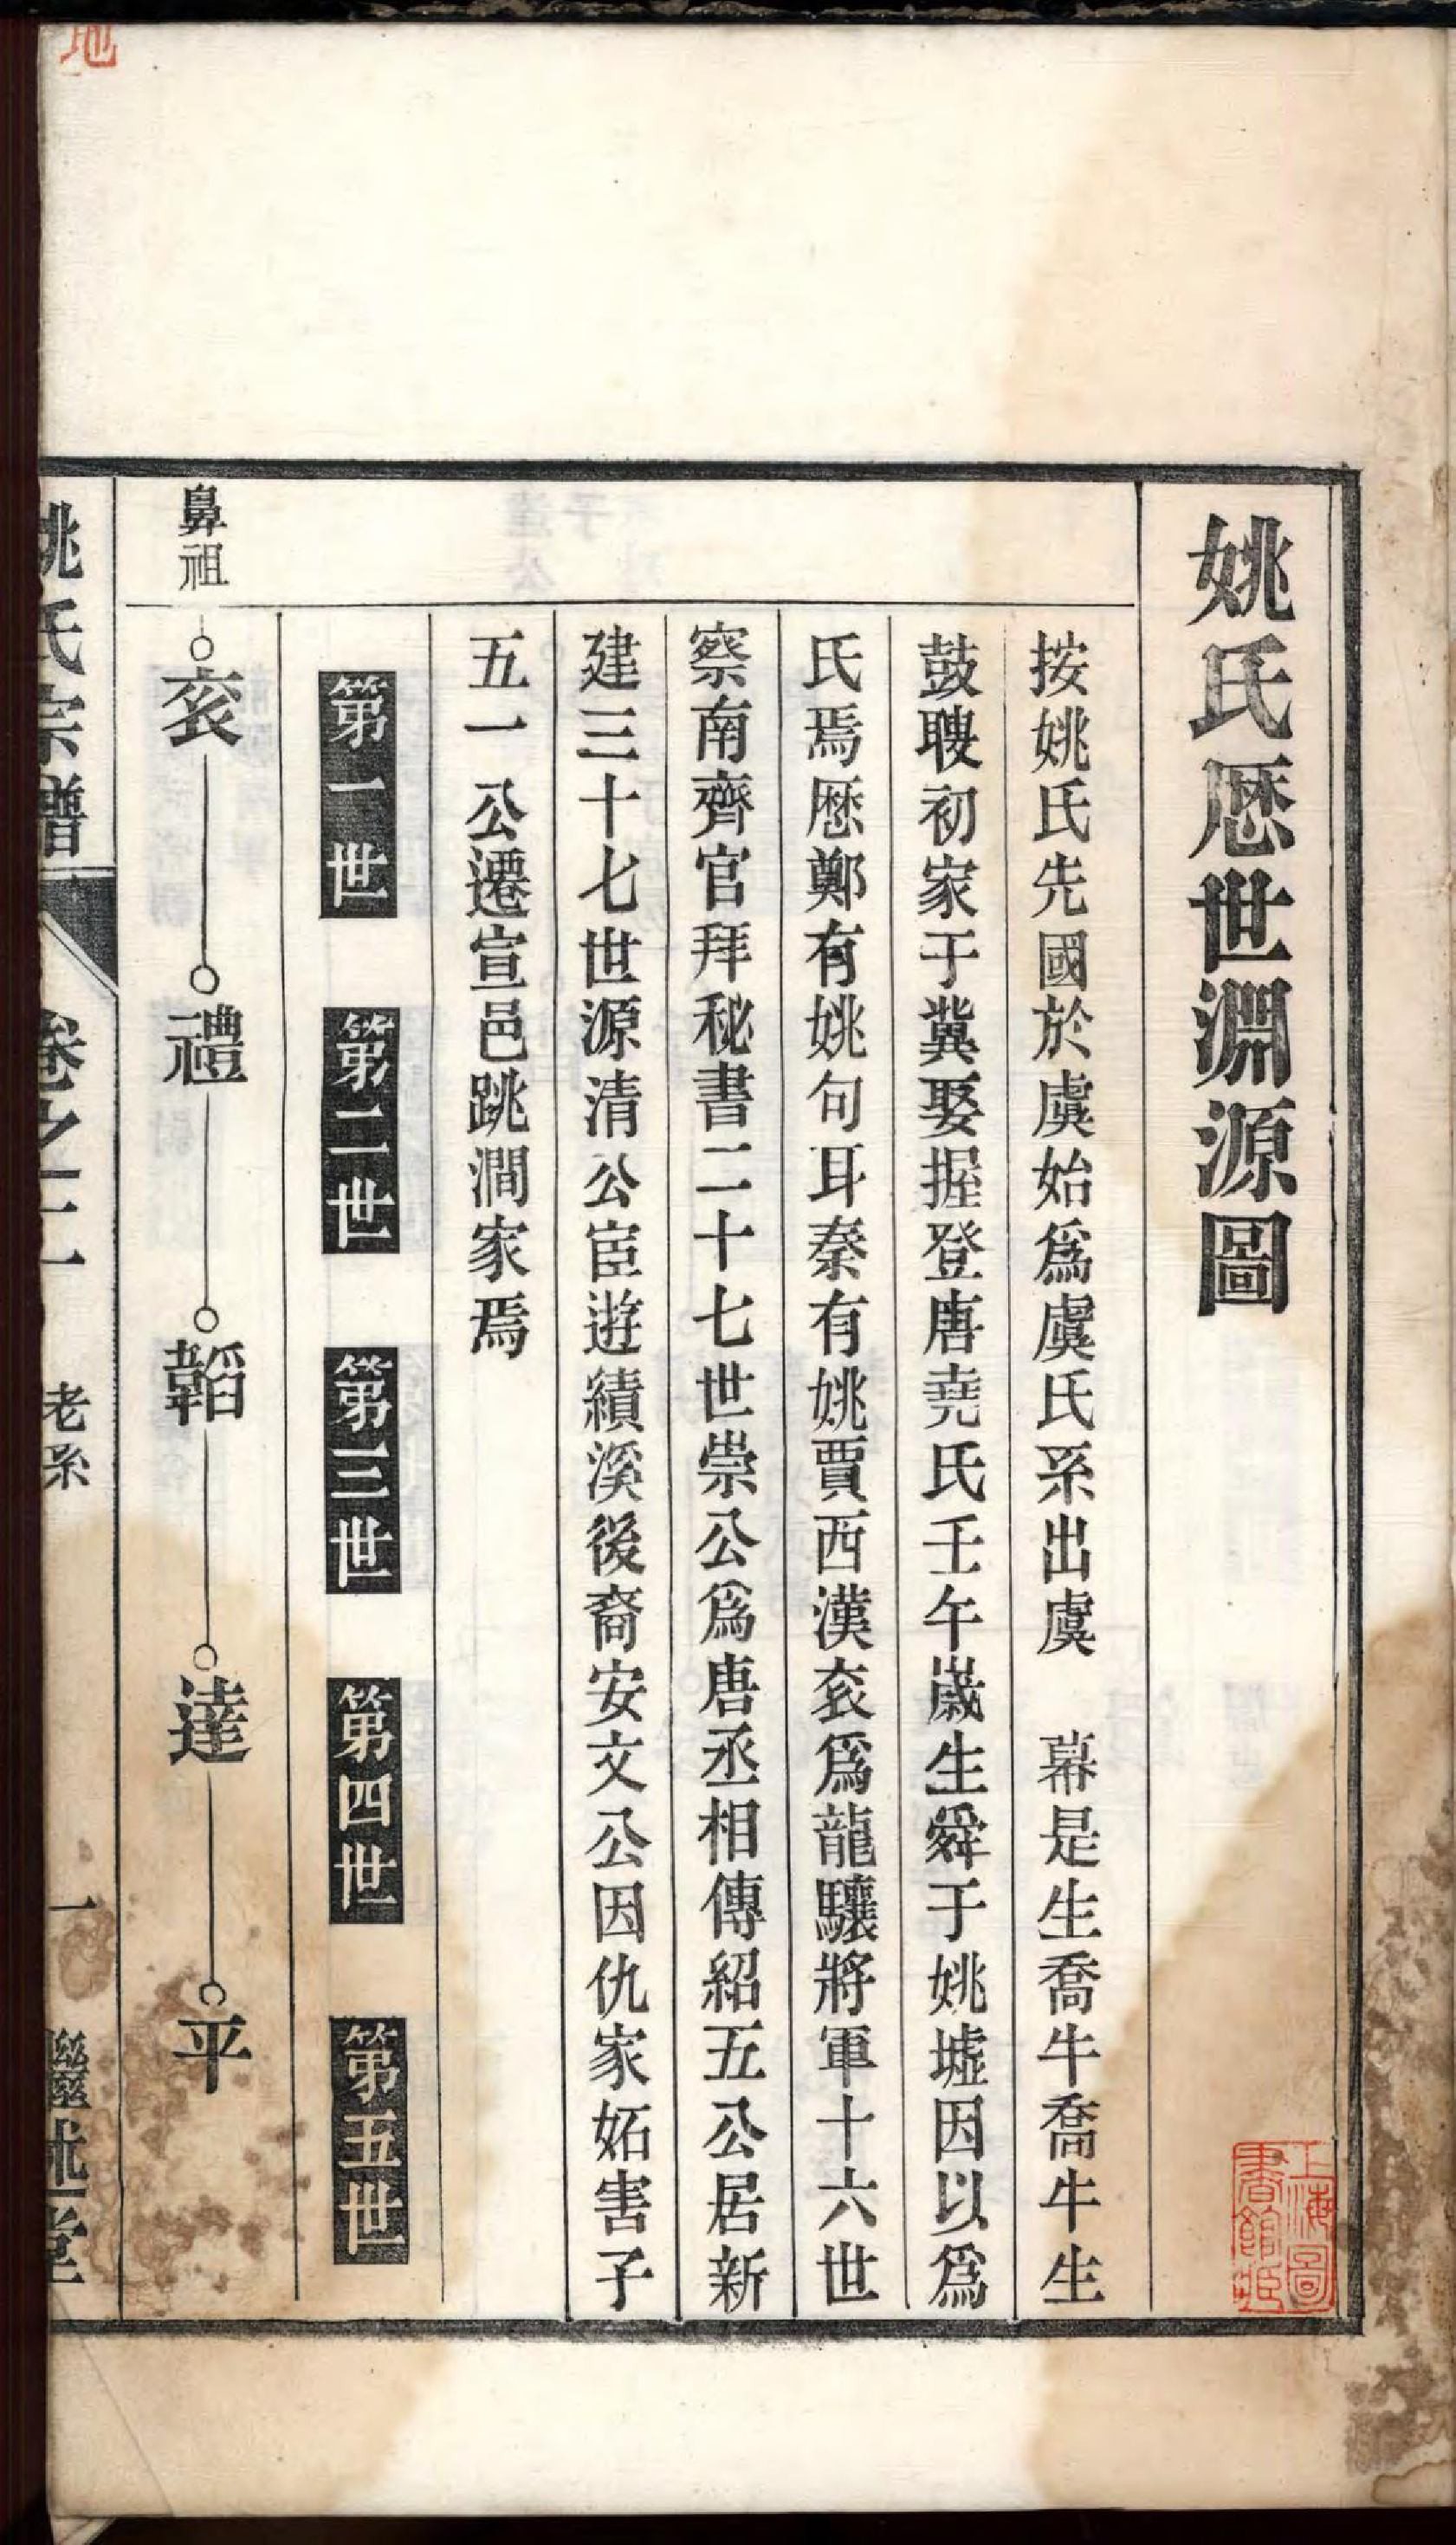 姚氏歷世淵源圖
按姚氏先國於虞始爲虞氏系出虞　幕是生喬牛喬牛生
鼓瞍初家于冀娶握登唐堯氏壬午歲生舜于姚墟因以爲
氏焉歷鄭有姚句耳秦有姚賈西漢衮爲龍驤將軍十六世
察南齊官拜秘書二十七世崇公爲唐丞相傳紹五公居新
建三十七世源清公宦遊績溪後裔安文公因仇家妬害子
五一公遷宣邑跳澗家焉
第一世　第二世　第三世　第四世　第五世
鼻祖　衮　禮　韜　達　平
姚氏宗譜　卷之二　老系　一　繼述堂
上海圖書館藏
地